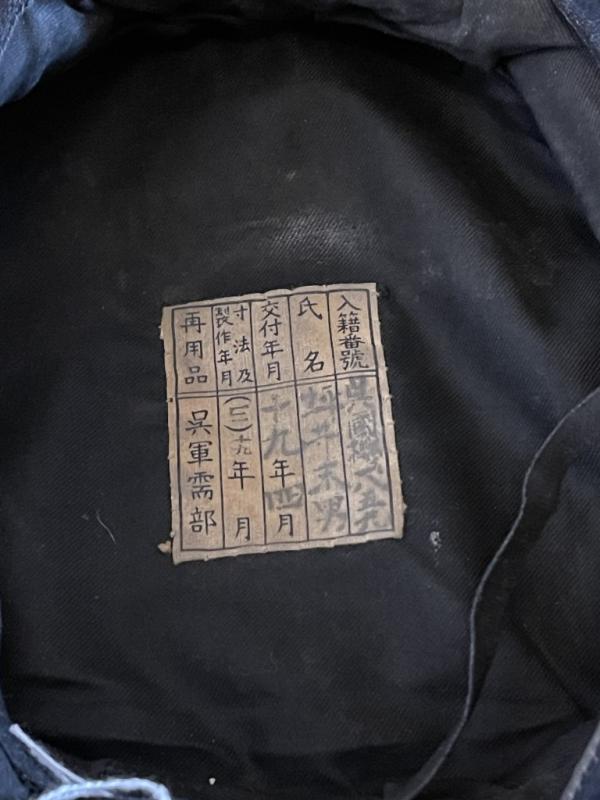 入籍番號 呉國機
氏名 坪井末男
交付年月 十九年四月
寸法及製作年月 (三)十九年 月
再用品 呉軍需部